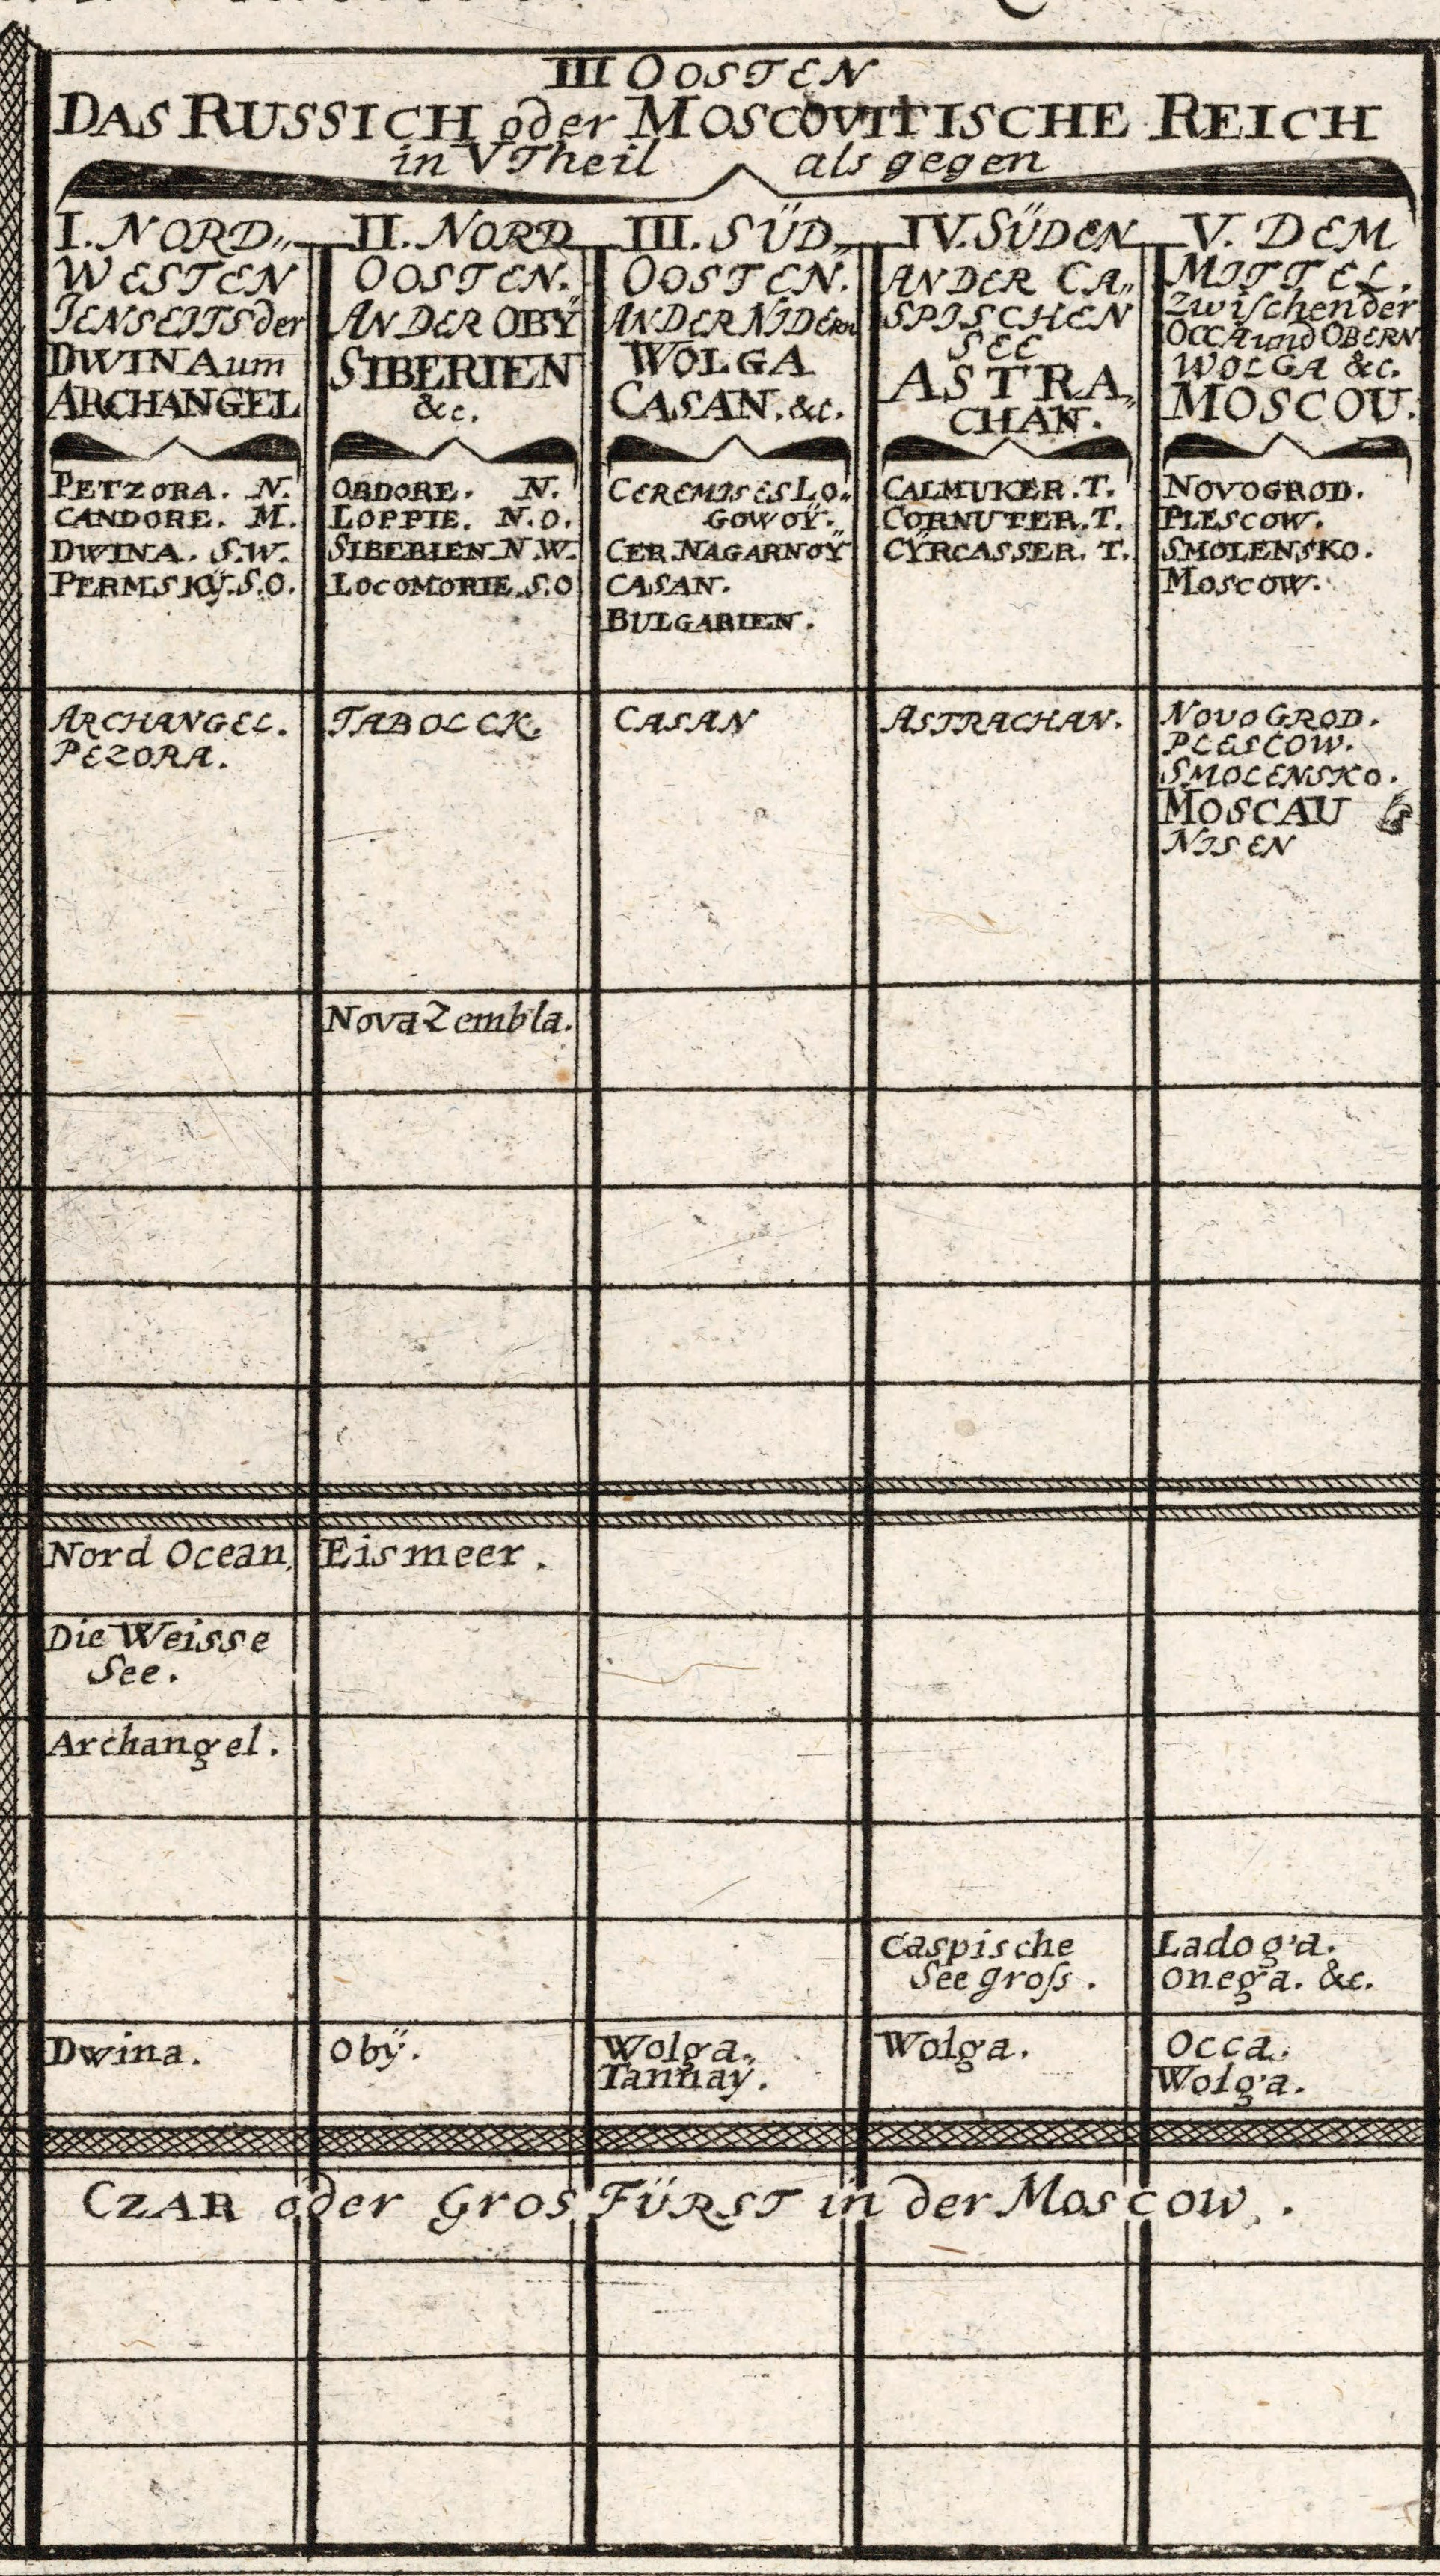 III OOSTEN
DAS RUSSICH oder MOSCOVITISCHE REICH
in V Theil als gegen
I. NORD„
WESTEN
JENSEITS der
DWINA um
ARCHANGEL
II. NORD
OOSTEN.
AN DER OBŸ
SIBERIEN
&c.
III. SÜD„
OOSTEN.
AN DER NIDERN
WOLGA
CASAN. &c.
IV. SÜDEN
AN DER CA„
SPISCHEN
SEE
ASTRA„
CHAN.
V. DEM
MITTEL.
zwischen der
OCCA und OBERN
WOLGA &c.
MOSCOU.
PETZORA. N.
CANDORE. M.
DWINA. S.W.
PERMSKŸ. S.O.
OBDORE. N.
LOPPIE. N.O.
SIBERIEN N.W.
LOCOMORIE. S.O
CEREMISES LO„
GOWOŸ.
CER. NAGARNOŸ
CASAN.
BULGARIEN.
CALMUKER. T.
CORNUTER. T.
CŸRCASSER. T.
NOVOGROD.
PLESCOW.
SMOLENSKO.
MOSCOW.
ARCHANGEL.
PEZORA.
TABOLCK.
CASAN
ASTRACHAN.
NOVOGROD.
PLESCOW.
SMOLENSKO.
MOSCAU
NISEN
Nova Zembla.
Nord Ocean.
Eismeer.
Die Weisse
See.
Archangel.
Caspische
See groſs.
Ladoga.
Onega. &c.
Dwina.
Obÿ.
Wolga.
Tannaÿ.
Wolga.
Occa.
Wolga.
CZAR oder Gros FÜRST in der Moscow.